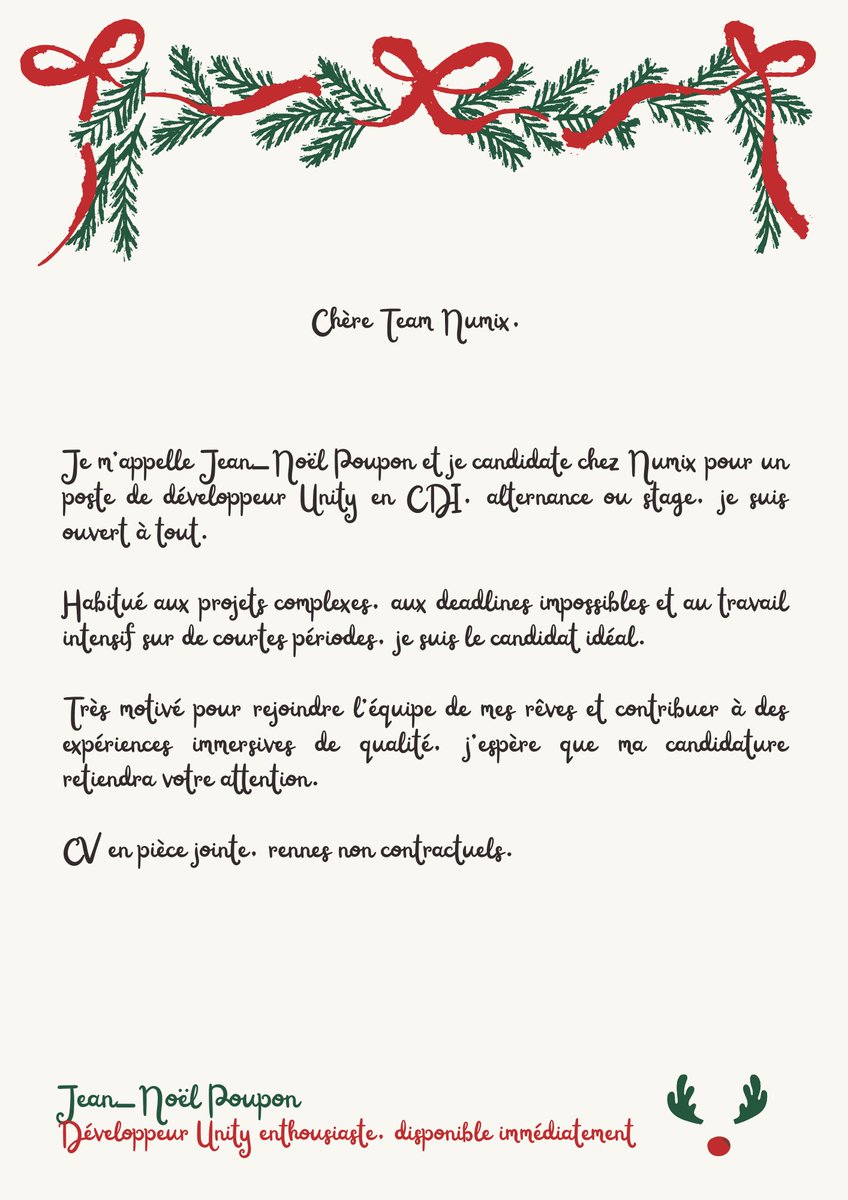 Chère Team Numix,
Je m'appelle Jean-Noël Poupon et je candidate chez Numix pour un
poste de développeur Unity en CDI, alternance ou stage, je suis
ouvert à tout.
Habitué aux projets complexes, aux deadlines impossibles et au travail
intensif sur de courtes périodes, je suis le candidat idéal.
Très motivé pour rejoindre l'équipe de mes rêves et contribuer à des
expériences immersives de qualité, j'espère que ma candidature
retiendra votre attention.
CV en pièce jointe, rennes non contractuels.
Jean-Noël Poupon
Développeur Unity enthousiaste, disponible immédiatement